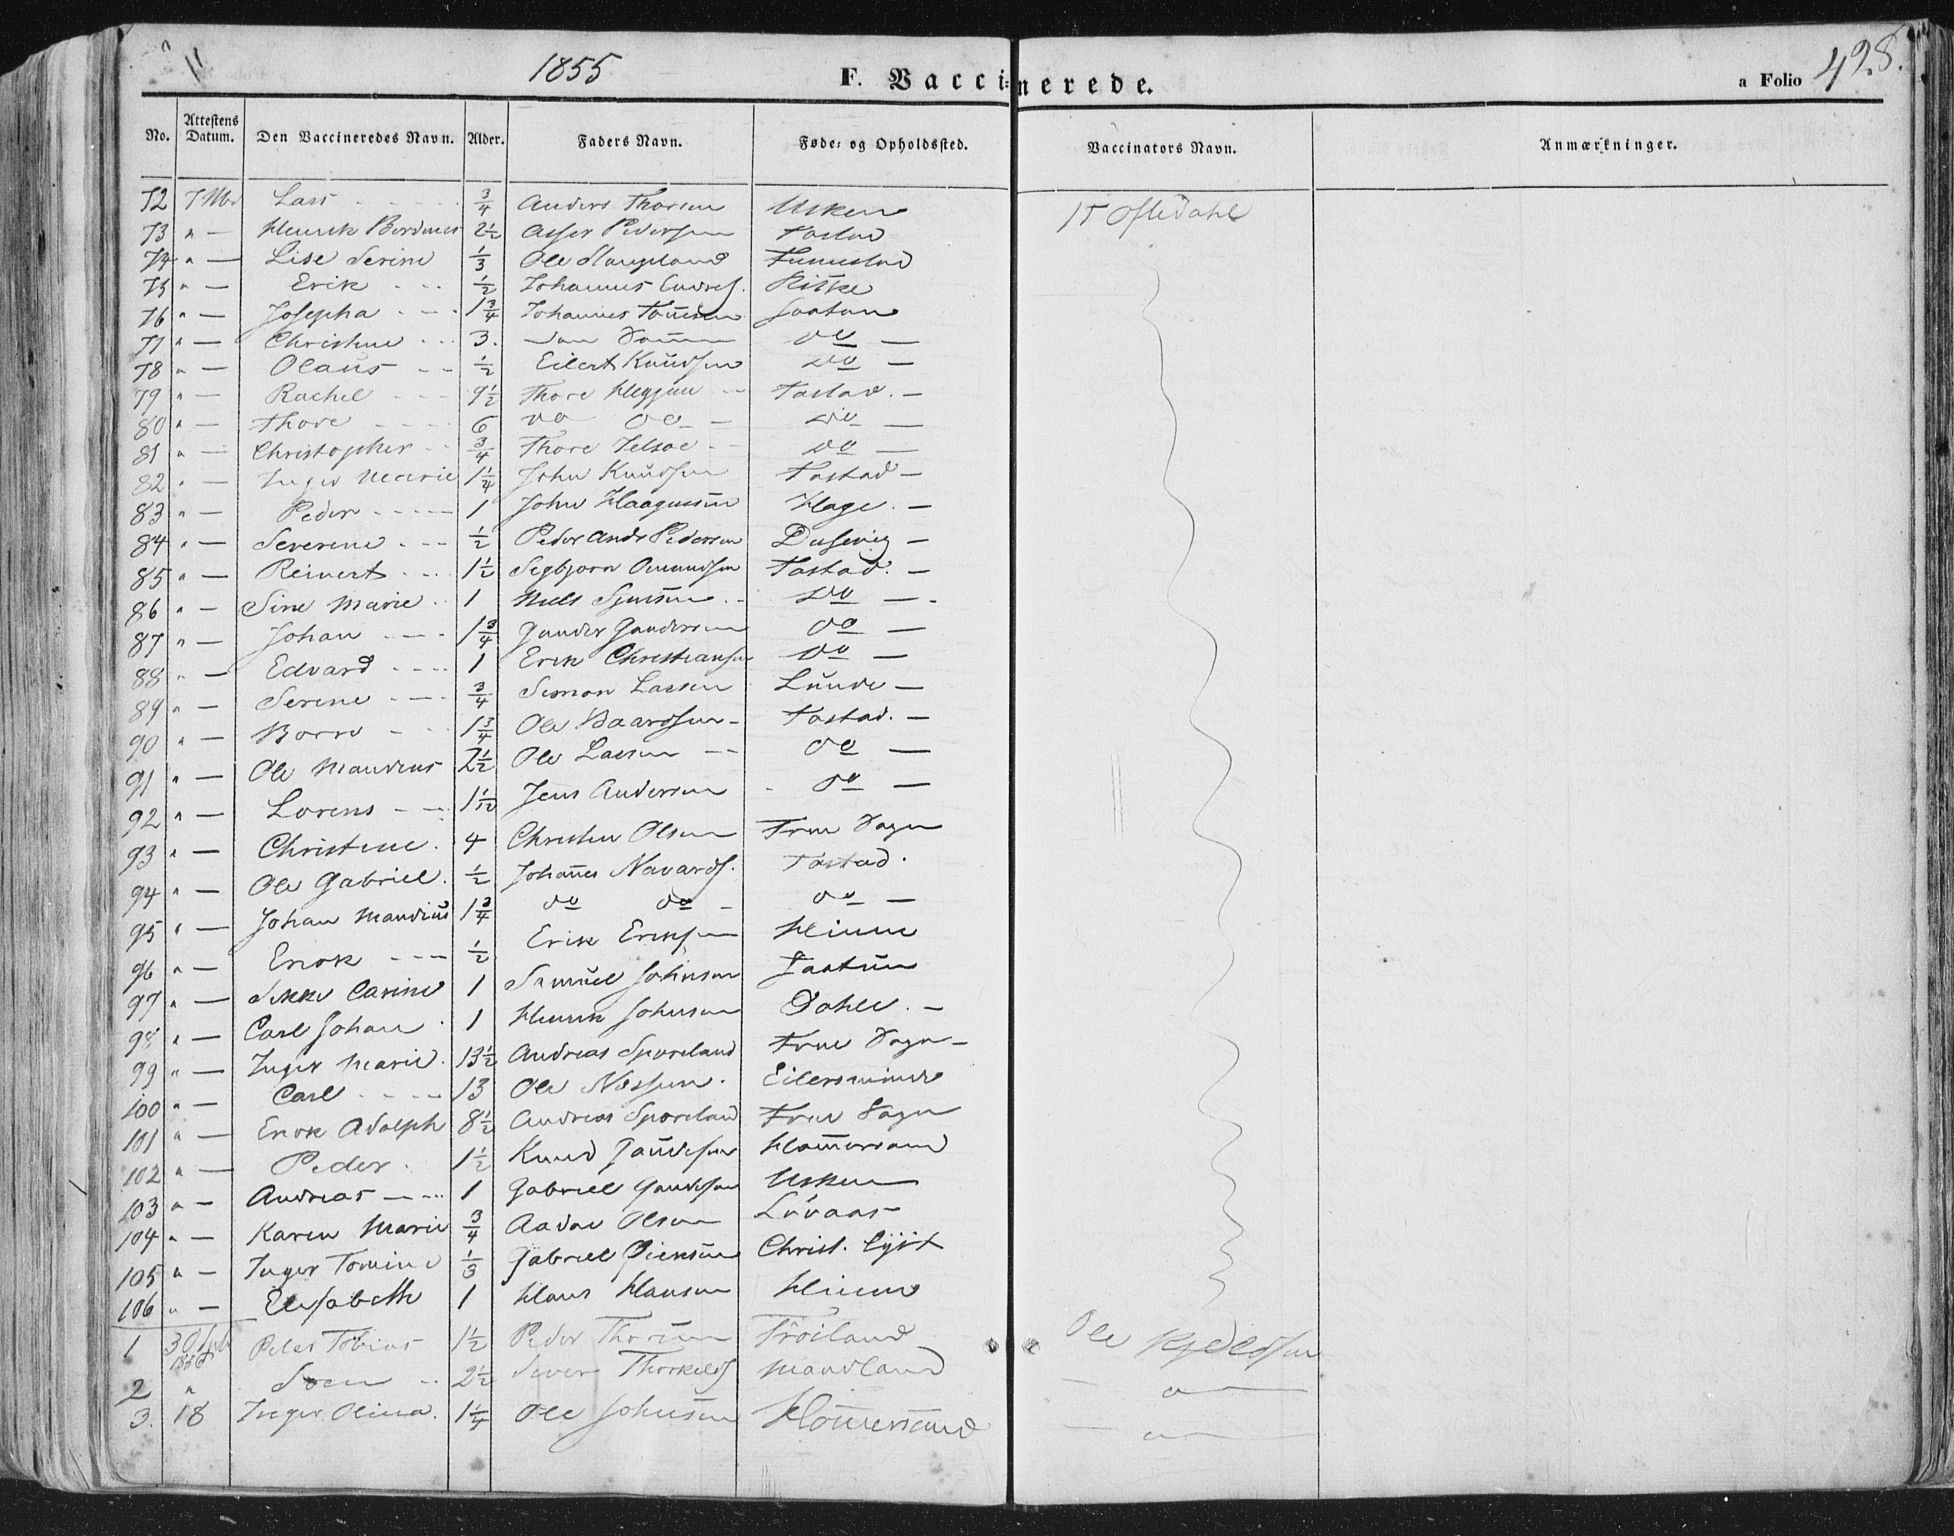 1855 F. Vaccinerede. a Folio 428.
No. Attestens Datum. Den Vaccineredes Navn. Alder. Faders Navn. Føde- og Opholdssted. Vaccinators Navn. Anmærkninger.
72 Lars 3/4 Anders Thorsen Usken Oftedahl
73 " — Henrik 2 1/2 Asser Pedersen Tastad
74 " — Lise Serine 1/3 Ole Haugeland
75 " — Erik 1/2 Johannes Riske
76 " — Josepha 1 3/4 Johannes Jaatun
77 " — Christine 3. do —
78 " — Olaus 1/2 Eilert Knudsen do —
79 " — Rachel 9 1/2 Thore Tastad. —
80 " — Thore 6 do do — do —
81 " — Christopher 3/4 Thore do —
82 " — Inger Marie 1 1/4 John Knudsen Tastad —
83 " — Peder 1 John Haagensen Hage. —
84 " — Severine 1/2 Peder Andr Pedersen Dusevig —
85 " — Reinert 1 1/2 Segbjørn Omundsen Tastad. —
86 " — Sine Marie 1 Niels do —
87 " — Johan 1 3/4 Gunder Gundersen do —
88 " — Edvard 1 Erik Christiansen do —
89 " — Serine 3/4 Simon Lassen Lunde —
90 " — Borre 1 3/4 Ole Baardsen — Tastad. —
91 " — Ole Mandius 2 1/2 Ole Lassen do —
92 " — Lorens 1 1/12 Jens Andersen do —
93 " — Christine. 4 Christen Olsen Frue Sogn
94 " — Ole Gabriel. 1/2 Johanes Navards. Tastad.
95 " — Johan Mandius 1 3/4 do do — do —
96 " — Enok 1/2 Erik Eriksen Hinne
97 " — Sikke Carine 1 Samuel Johnsen Jaatun
98 " — Carl Johan 1 Henrik Johnsen Dahle. —
99 " — Inger Marie. 13 1/2 Andreas Sporeland Frue Sogn —
100 " — Carl 13 Ole Eilersminde
101 " — Enok Adolph 8 1/2 Andreas Sporeland Frue Sogn
102 " — Peder 1 1/2 Knud Gaudesen Homersand
103 " — Andreas 1 Gabriel Gaudesen Usken
104 " — Karen Marie 3/4 Aadne Olsen Lövaas
105 " — Inger Tomine 1/3 Gabriel
106 " — Elisabeth 1 Hans Hansen Hinne
1 30 Peder Tobias 1 1/2 Peder Thorsen Fröiland Ole Kjeldsen
2 " Sven 2 1/2 Siver Thorkelds Mandland — " —
3. 18 Inger Olina. 1 1/4 Ole Johnsen Homersand — " —